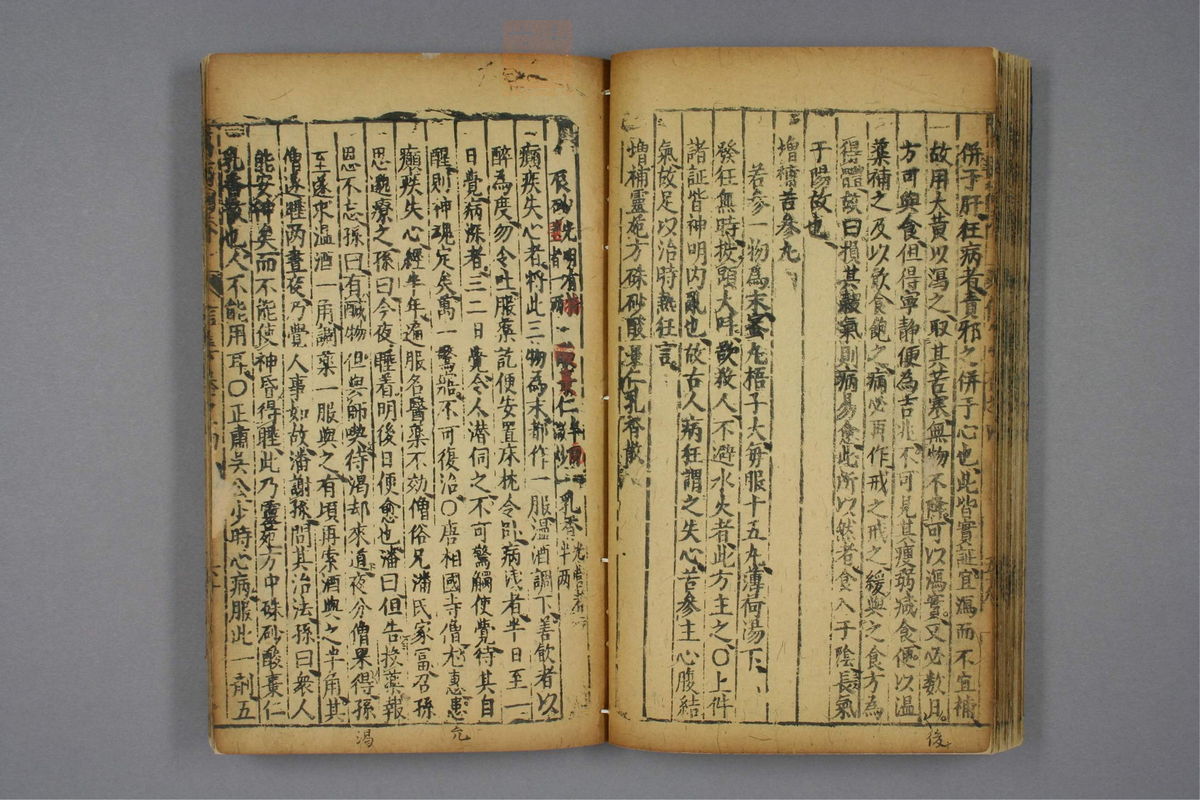 併于肝狂病者責邪之併于心也此皆實証宜瀉而不宜補
故用大黃以瀉之取其苦寒無物不降可以瀉實又必數日
後
方可與食但得寧靜便為吉兆不可見其瘦弱减食便以温
藥補之及以飲食飽之病必再作戒之戒之緩與之食方為
得體故曰損其穀氣則病易愈此所以然者食入于陰長氣
于陽故也
增補苦參丸
苦參一物為末蜜丸梧子大每服十五丸薄荷湯下
發狂無時披頭大呌欲殺人不避水火者此方主之〇上件
諸証皆神明內亂也故古人病狂謂之失心苦參主心腹結
氣故足以治時熱狂言
增補靈菀方硃砂酸棗仁乳香散
辰砂光明有 者一兩 酸棗仁半兩微炒 乳香半兩光瑩者
癲疾失心者將此三物為末都作一服温酒調下善飲者以
醉為度勿令吐服藥訖便安置床枕令卧病浅者半日至一
日覺病深者三二日覺令人潜伺之不可驚觸使覺待其自
醒則神魂定矣萬一驚寤不可復治〇唐相國寺僧允惠患
允
癲疾失心經半年遍服名醫藥不効僧俗兄潘氏家冨召孫
思邈療之孫曰今夜睡着明後日便愈也潘曰但告投藥報
恩不忘孫曰有醎物但與師喫待渴却來道夜分僧果得孫
渴
至遂求温酒一角調藥一服與之有頃再索酒與之半角其
僧遂睡两晝夜乃覺人事如故潘謝孫問其治法孫曰衆人
能安神矣而不能使神昏得睡此乃靈菀方中硃砂酸棗仁
乳香散也人不能用耳〇正肅吳公少時心病服此一劑五